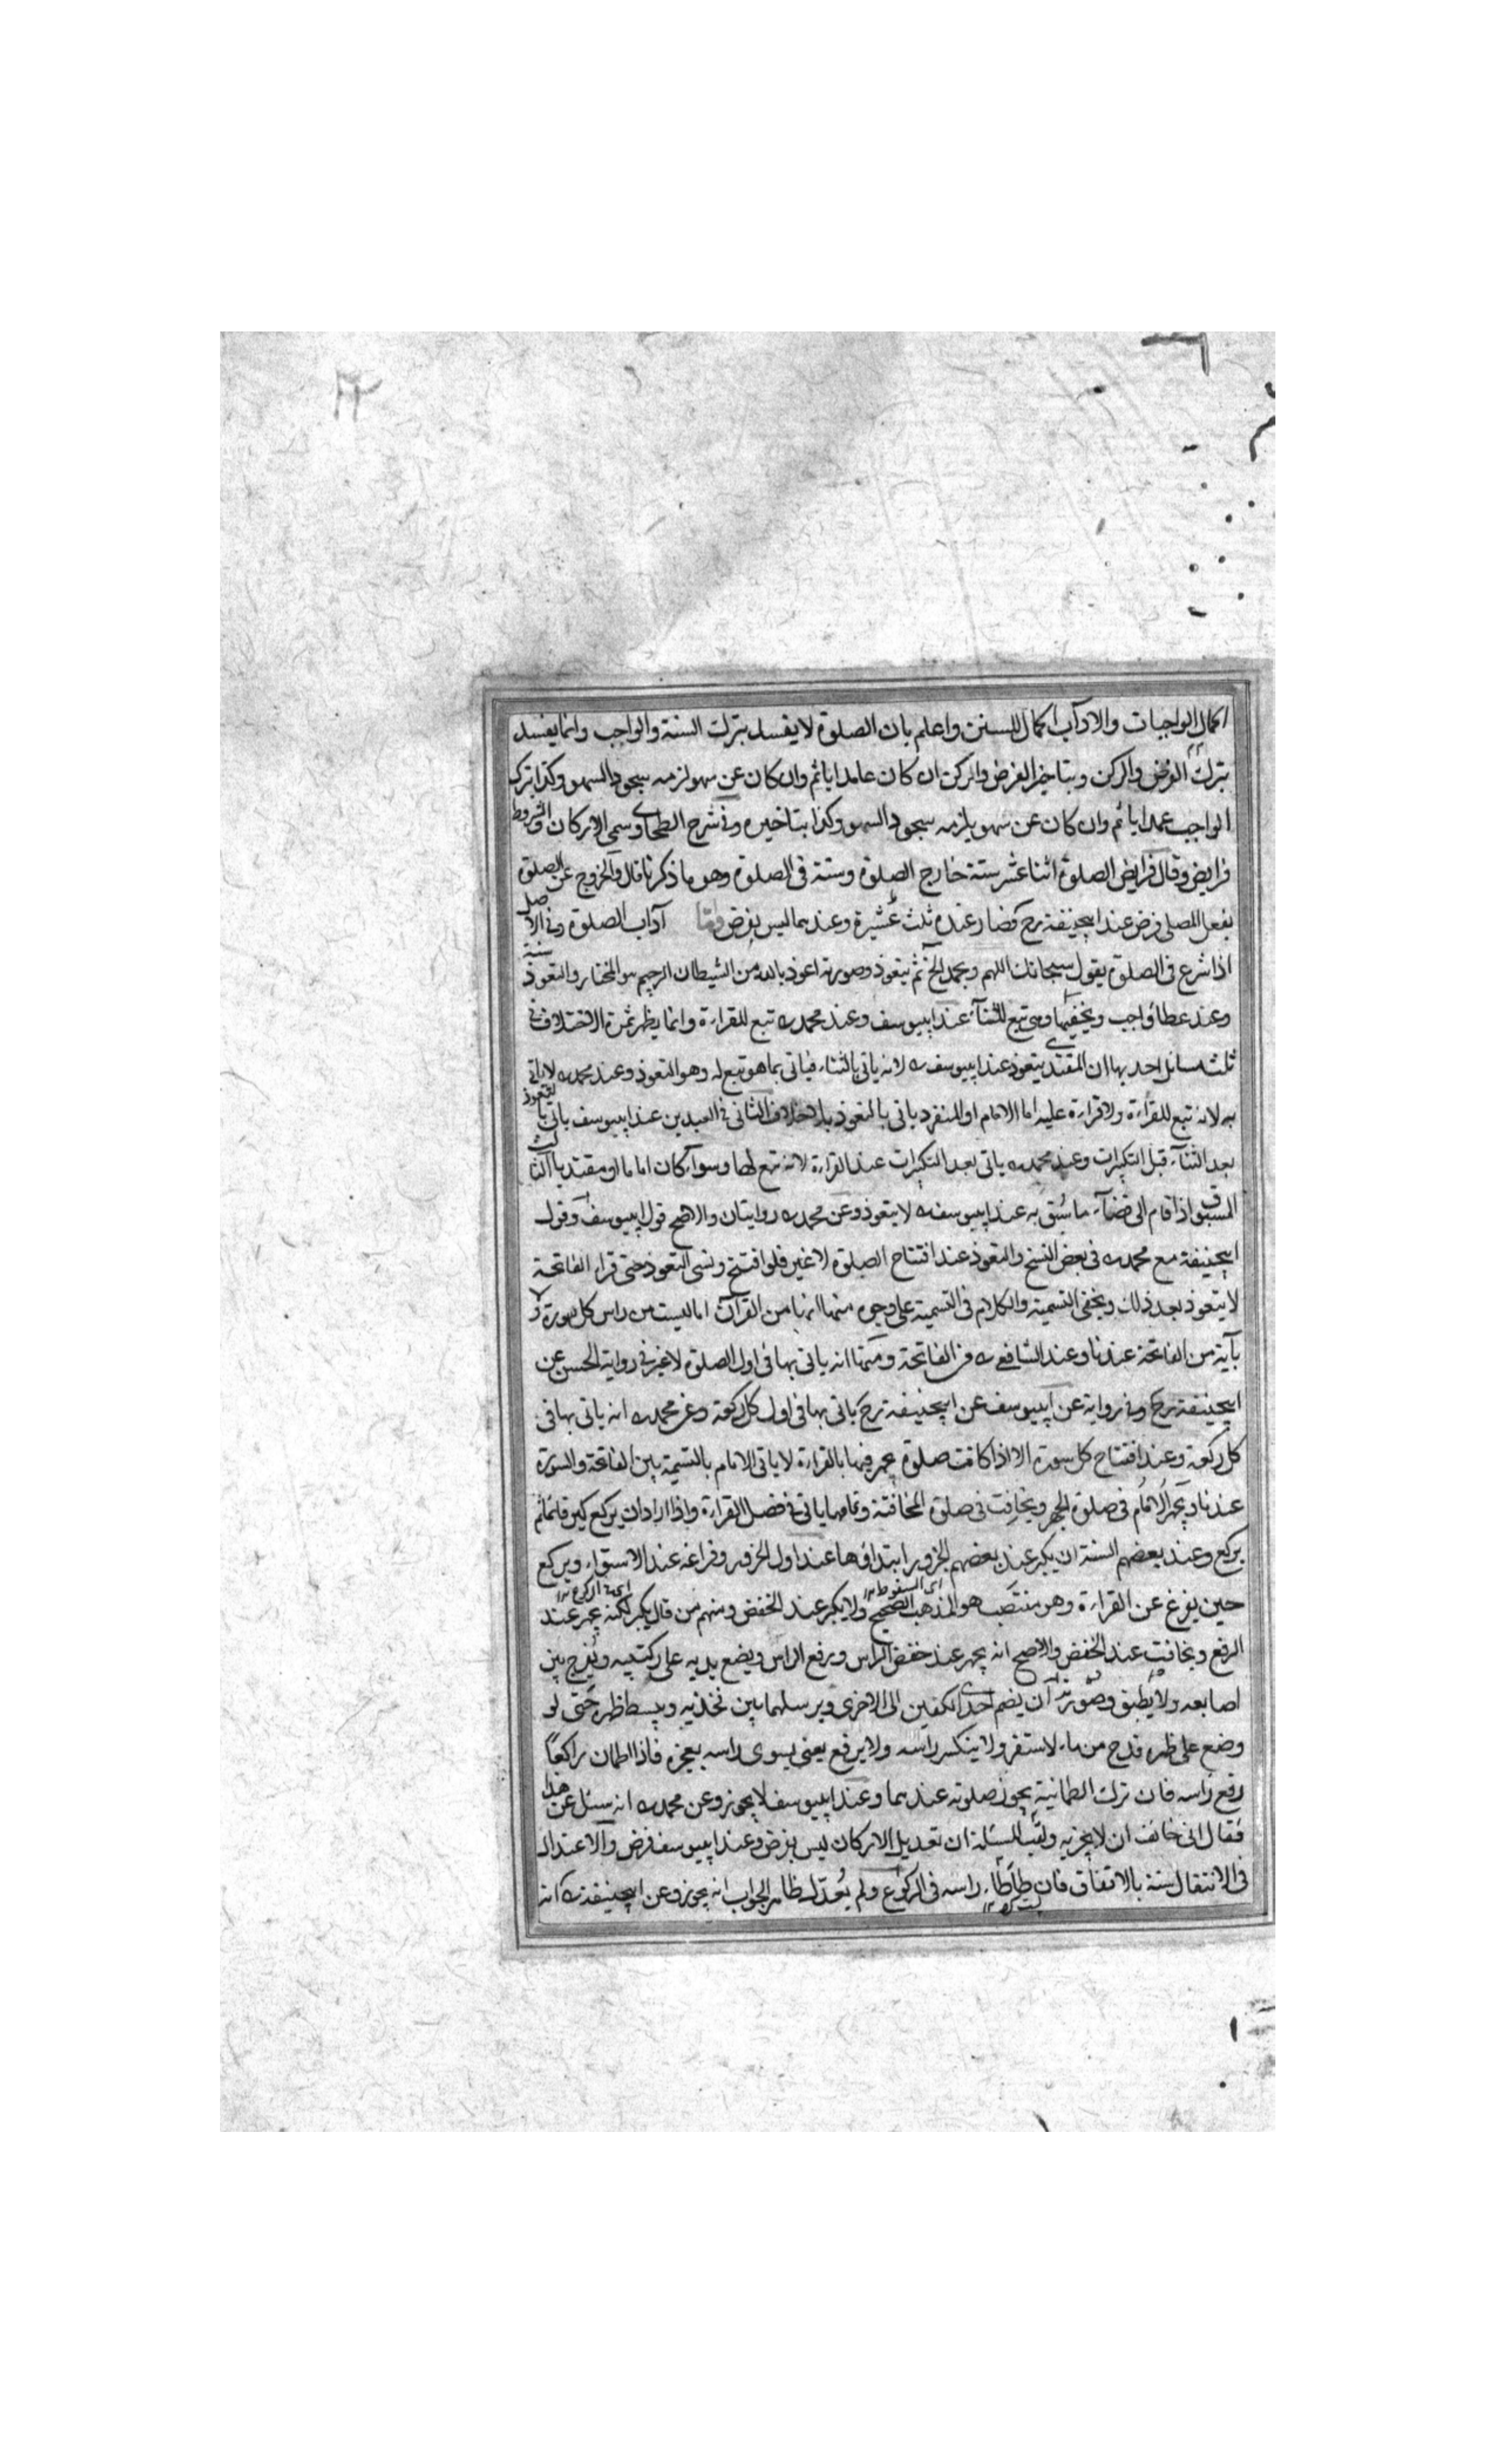 اكمال الواجبات والادآب اكمال للسنن واعلم بان الصلوة لا يفسد بترك السنة والواجب وانما يفسد
بترك الفرض والركن وبتاخير الفرض والركن ان كان عامدا ياثم وان كان عن سهو لزمه سجود السهو وكذا بترك
الواجب عمدا ياثم وان كان عن سهو يلزمه سجود السهو وكذا بتاخيره وفي شرح الطحاوي سمى الاركان والشروط
فرايض وقال فرايض الصلوة اثنا عشر ستة خارج الصلوة وستة في الصلوة وهو ما ذكرنا قال والخروج عن الصلوة
بفعل المصلى فرض عند ابيحنيفة رح فصار عنده ثلث عشيرة وعندهما ليس بفرض واما آداب الصلوة وفي الاصل
اذا شرع في الصلوة يقول سبحانك اللهم وبحمدك الخ ثم يتعوذ وصورته اعوذ بالله من الشيطان الرجيم هو المختار والتعوذ سنة
وعند عطا واجب ويخفيها وهى تبع للثنآء عند ابييوسف وعند محمد ره تبع للقراءة وانما يظهر ثمرة الاختلاف في
ثلث مسائل احديها ان المقتدى يتعوذ عند ابييوسف ره لانه ياتى بالثناء فياتى بما هو تبع له وهو التعوذ وعند محمد ره لا ياتى
به لانه تبع للقراءة ولا قراءة عليه اما الامام او المنفرد ياتى بالتعوذ بلا خلاف الثانى في العيدين عند ابييوسف ياتى بالتعوذ
بعد الثنآء قبل التكبيرات وعند محمد ره ياتى بعد التكبيرات عند القراءة لانه تبع لها وسوآء كان اماما او مقتديا الثالث
المسبوق اذا قام الى قضآء ما سبق به عند ابييوسف ره لا يتعوذ وعن محمد ره روايتان والاصح قول ابييوسف وقول
ابيحنيفة مع محمد ره في بعض النسخ والتعوذ عند افتتاح الصلوة لا غير فلو افتتح ونسى التعوذ حتى قراء الفاتحة
لا يتعوذ بعد ذلك ويخفى التسمية والكلام في التسمية على وجوه منها انها من القرآن اما ليست من راس كل سورة ولا
بآية من الفاتحة عندنا وعند الشافعى ره من الفاتحة ومنها انه ياتى بها في اول الصلوة لا غير في رواية الحسن عن
ابيحنيفة رح وفي رواية عن ابييوسف عن ابيحنيفة رح ياتى بها في اول كل ركعة وعن محمد ره انه ياتى بها في
كل ركعة وعند افتتاح كل سورة الا اذا كانت صلوة يجهر فيها بالقراءة لا ياتى الامام بالتسمية بين الفاتحة والسورة
عندنا ويجهر الامام في صلوة الجهر ويخافت في صلوة المخافتة وتمامها ياتى في فصل القراءة واذا اراد ان يركع كبر قائما ثم
يركع وعند بعضهم السنة ان يكبر عند بعضهم الخرور ابتداؤها عند اول الخرور وفراغه عند الاستواء ويركع
حين يفرغ عن القراءة وهو منتصب هو المذهب الصحيح ولا يكبر عند الخفض ومنهم من قال يكبر لكنه يجهر عند
اى السقوط ١٢
الرفع ويخافت عند الخفض والاصح انه يجهر عند خفض الراس ورفع الراس ويضع يديه على ركبتيه ويفرج بين
اصابعه ولا يطبق وصورته ان يضم احدى الكفين الى الاخرى ويرسلهما بين فخذيه ويبسط ظهره حتى لو
وضع على ظهره قدح من ماء لاستقر ولا ينكس راسه ولا يرفع يعنى يسوى راسه بعجزه فاذا اطمان راكعًا
رفع راسه فان ترك الطمانية يجوز صلوته عندهما وعند ابييوسف لا يجوز وعن محمد ره انه سئل عن هذا
فقال انى خائف ان لا يجزيه ولقب المسئلة ان تعديل الاركان ليس بفرض وعند ابييوسف فرض والاعتدال
في الانتقال سنة بالاتفاق فان طأطأء راسه في الركوع ولم يعدل ظاهر الجواب انه يجوز وعن ابيحنيفة ره انه